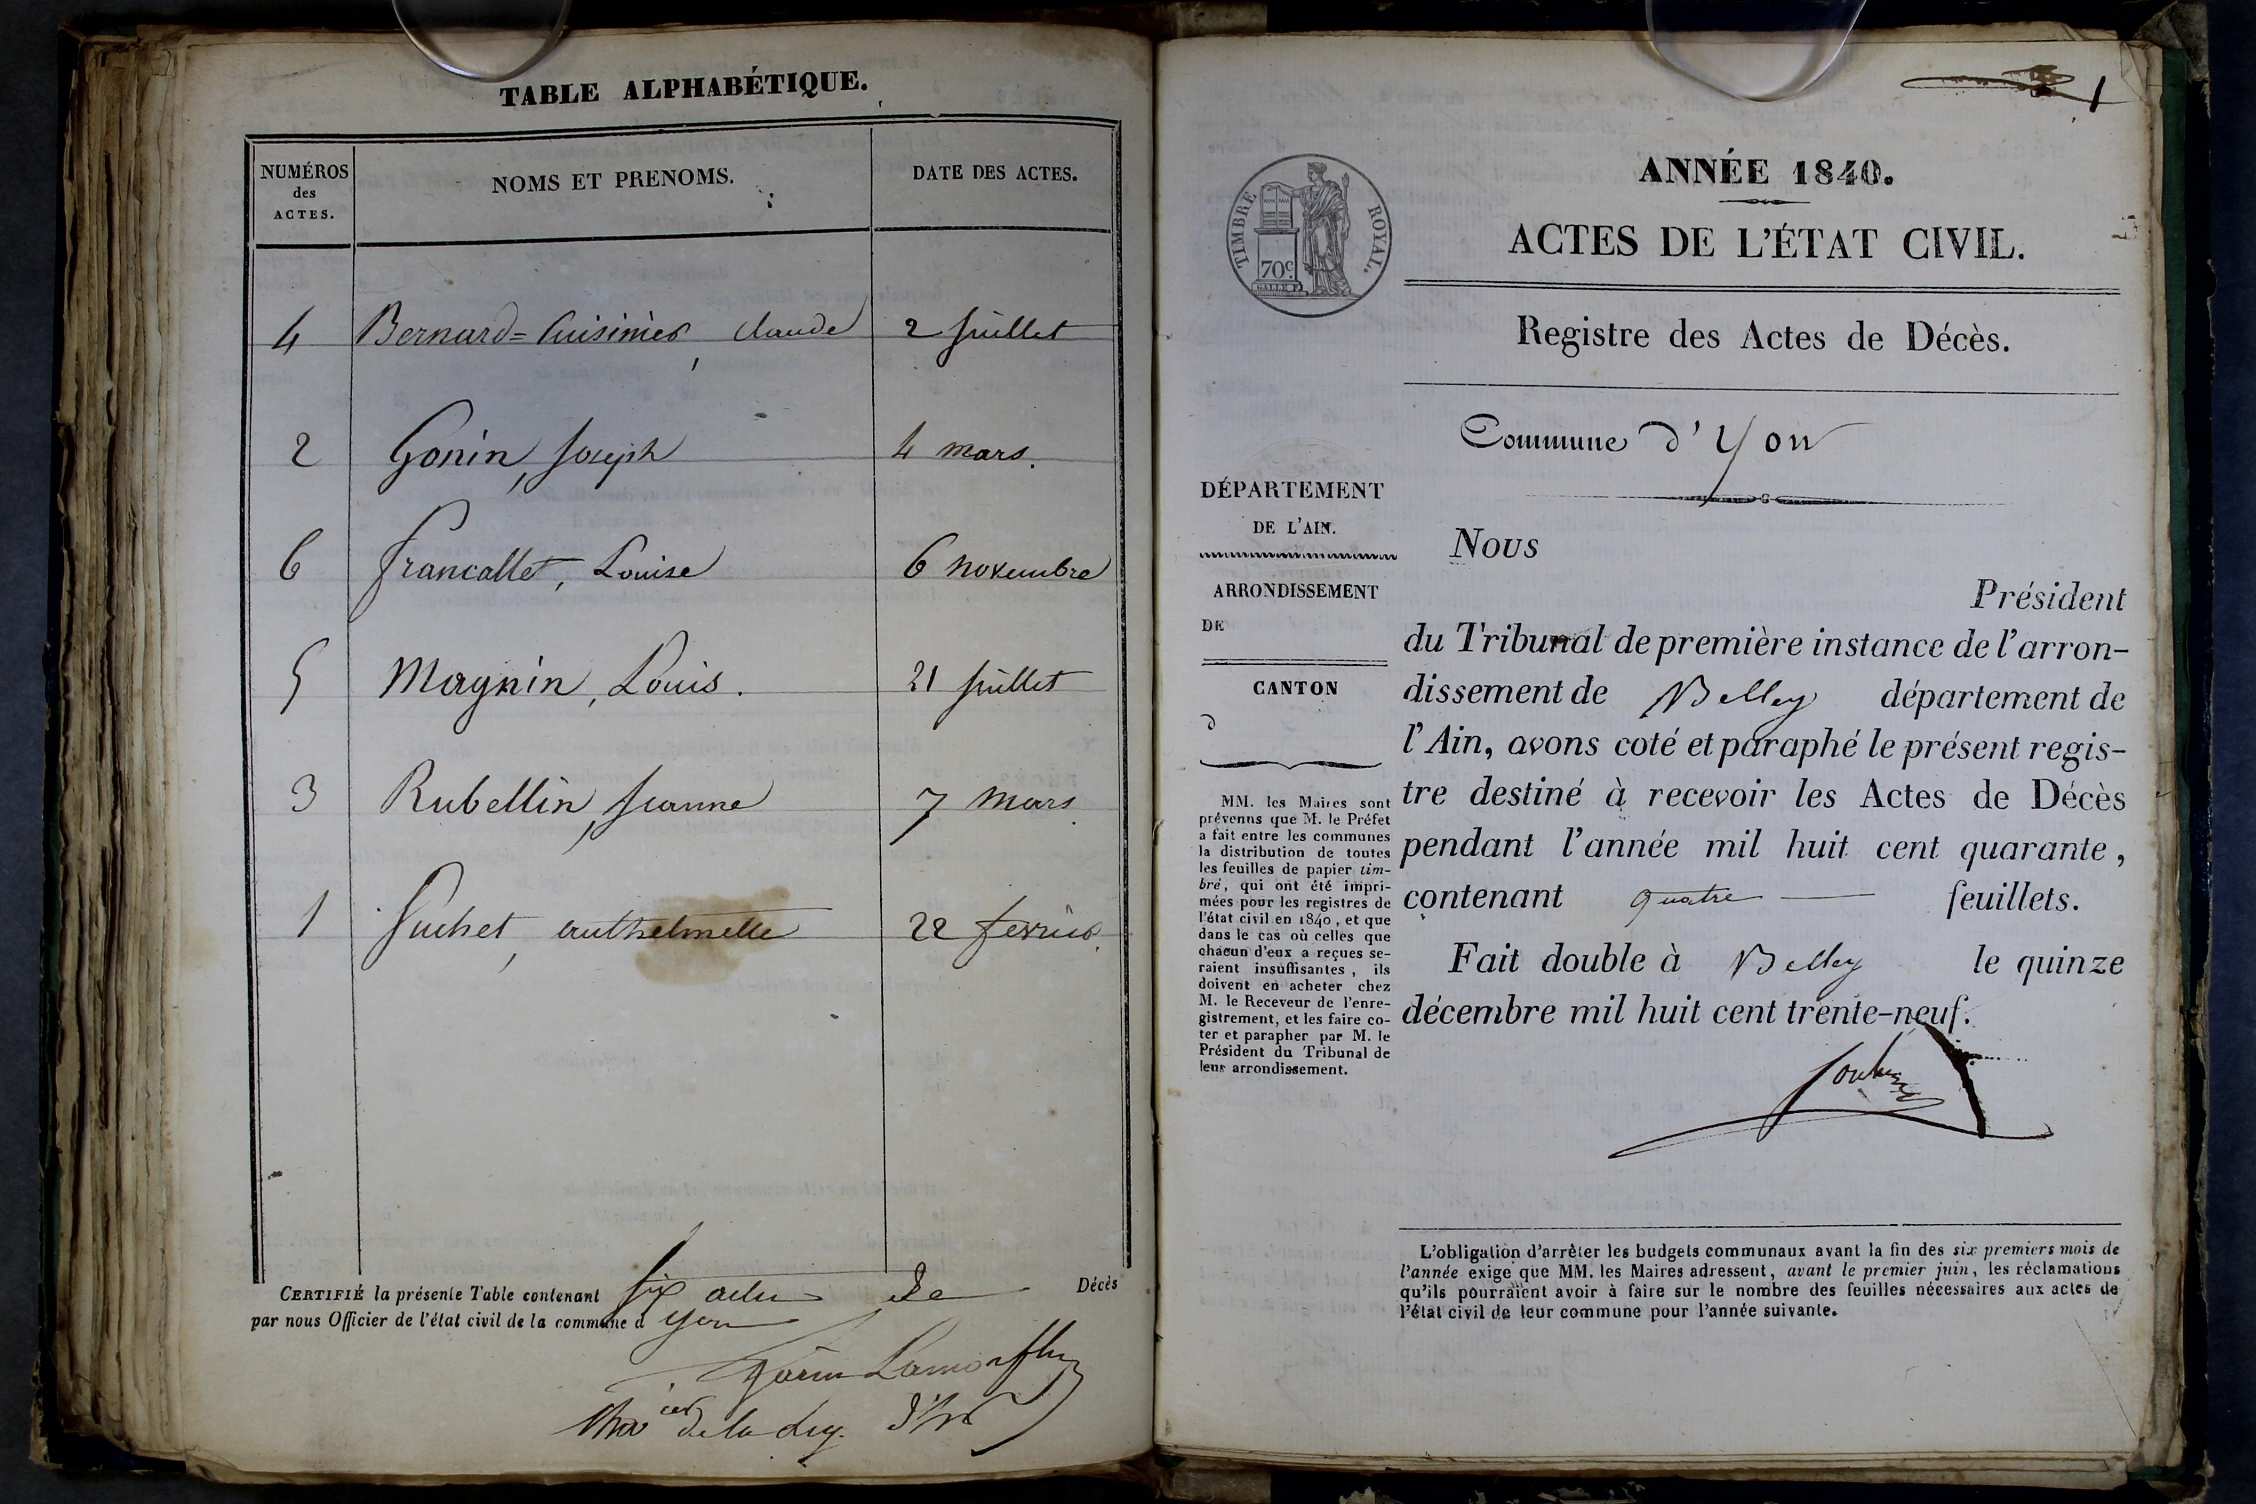 TABLE ALPHABÉTIQUE.
NUMÉROS
des
ACTES.
NOMS ET PRENOMS.
DATE DES ACTES.
4 Bernard=Cuisinier, Claude 2 Juillet
2 Gonin, Joseph 4 mars.
6 Francallet, Louise 6 novembre
5 Magnin, Louis. 21 Juillet
3 Rubellin, Jeanne 7 mars.
1 Suchet, anthelmette 22 fevrier.
CERTIFIÉ la présente Table contenant Six actes de Décès
par nous Officier de l'état civil de la commune d yon
de la Leg. d'h
1
TIMBRE ROYAL.
70c.
ANNÉE 1840.
ACTES DE L'ÉTAT CIVIL.
Registre des Actes de Décès.
Commune d'Yon
DÉPARTEMENT
DE L'AIN.
ARRONDISSEMENT
DE
CANTON
d
MM. les Maires sont
prévenus que M. le Préfet
a fait entre les communes
la distribution de toutes
les feuilles de papier tim-
bré, qui ont été impri-
mées pour les registres de
l'état civil en 1840, et que
dans le cas où celles que
chacun d'eux a reçues se-
raient insuffisantes, ils
doivent en acheter chez
M. le Receveur de l'enre-
gistrement, et les faire co-
ter et parapher par M. le
Président du Tribunal de
leur arrondissement.
Nous
Président
du Tribunal de première instance de l'arron-
dissement de Belley département de
l'Ain, avons coté et paraphé le présent regis-
tre destiné à recevoir les Actes de Décès
pendant l'année mil huit cent quarante,
contenant quatre feuillets.
Fait double à Belley le quinze
décembre mil huit cent trente-neuf.
L'obligation d'arrêter les budgets communaux avant la fin des six premiers mois de
l'année exige que MM. les Maires adressent, avant le premier juin, les réclamations
qu'ils pourraient avoir à faire sur le nombre des feuilles nécessaires aux actes de
l'état civil de leur commune pour l'année suivante.